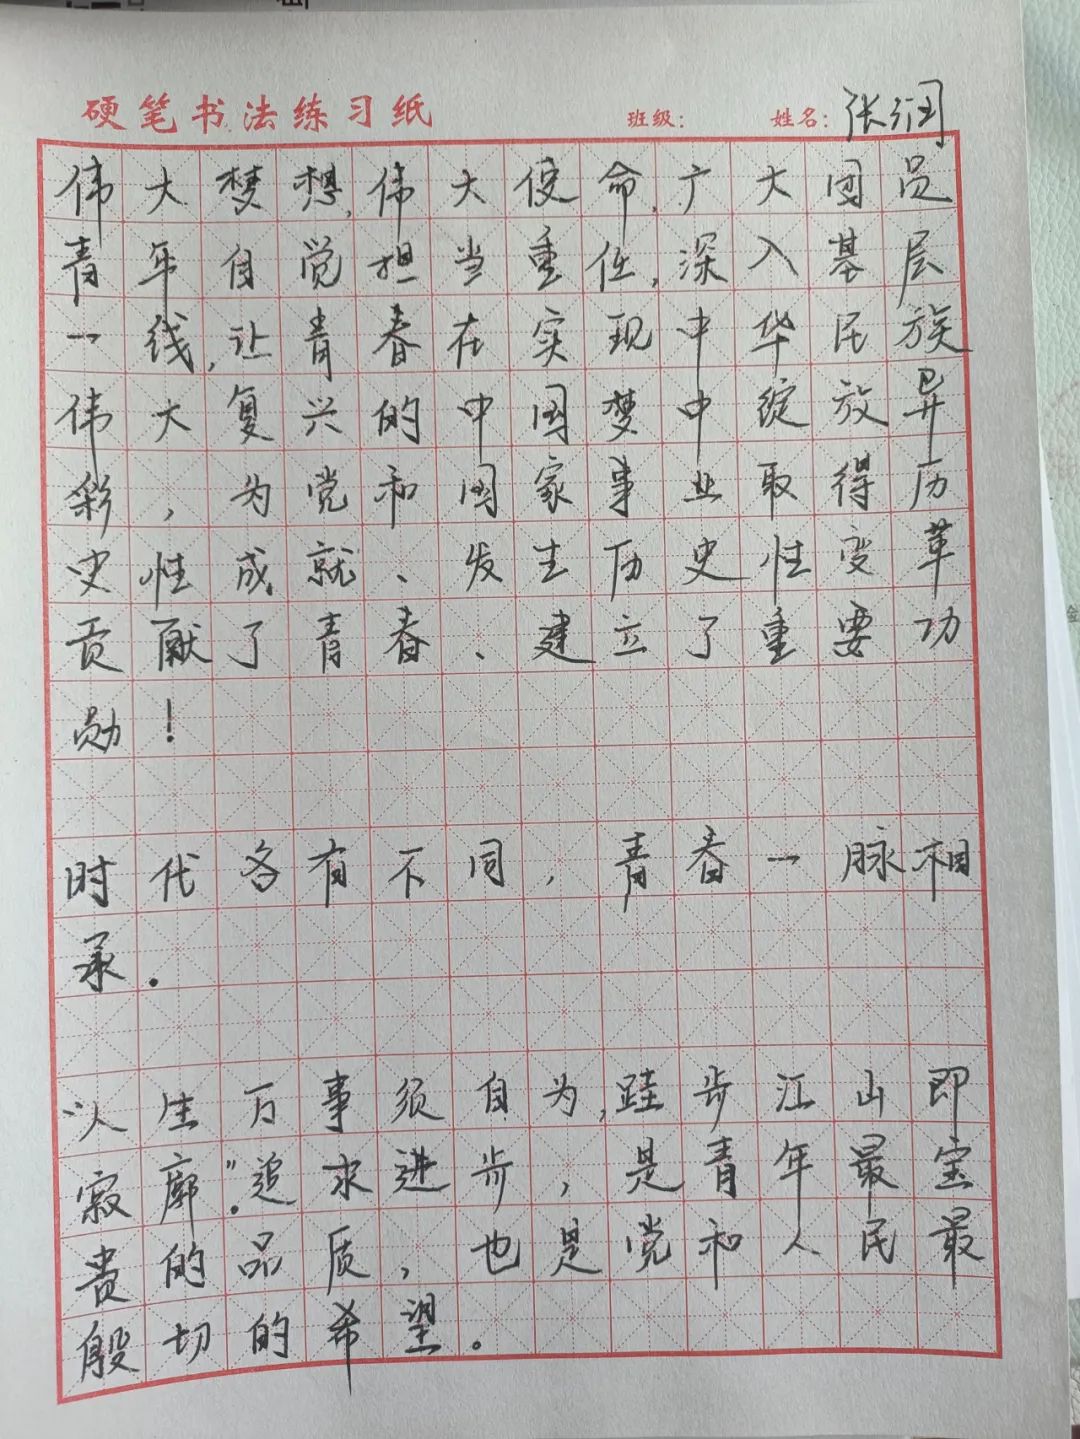 硬笔书法练习纸 班级: 姓名: 张润
伟大梦想,伟大使命,广大团员
青年自觉担当重任,深入基层
一线,让青春在实现中华民族
伟大复兴的中国梦中绽放异
彩,为党和国家事业取得历
史性成就、发生历史性变革
贡献了青春、建立了重要功
勋!
时代各有不同,青春一脉相
承.
"人生万事须自为,跬步江山即
寂廓."追求进步,是青年最宝
贵的品质,也是党和人民最
殷切的希望。